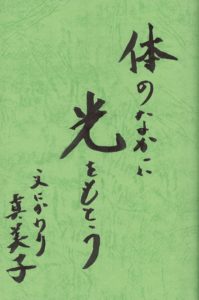 体のなかに
光をもとう
文にかわり
真美子